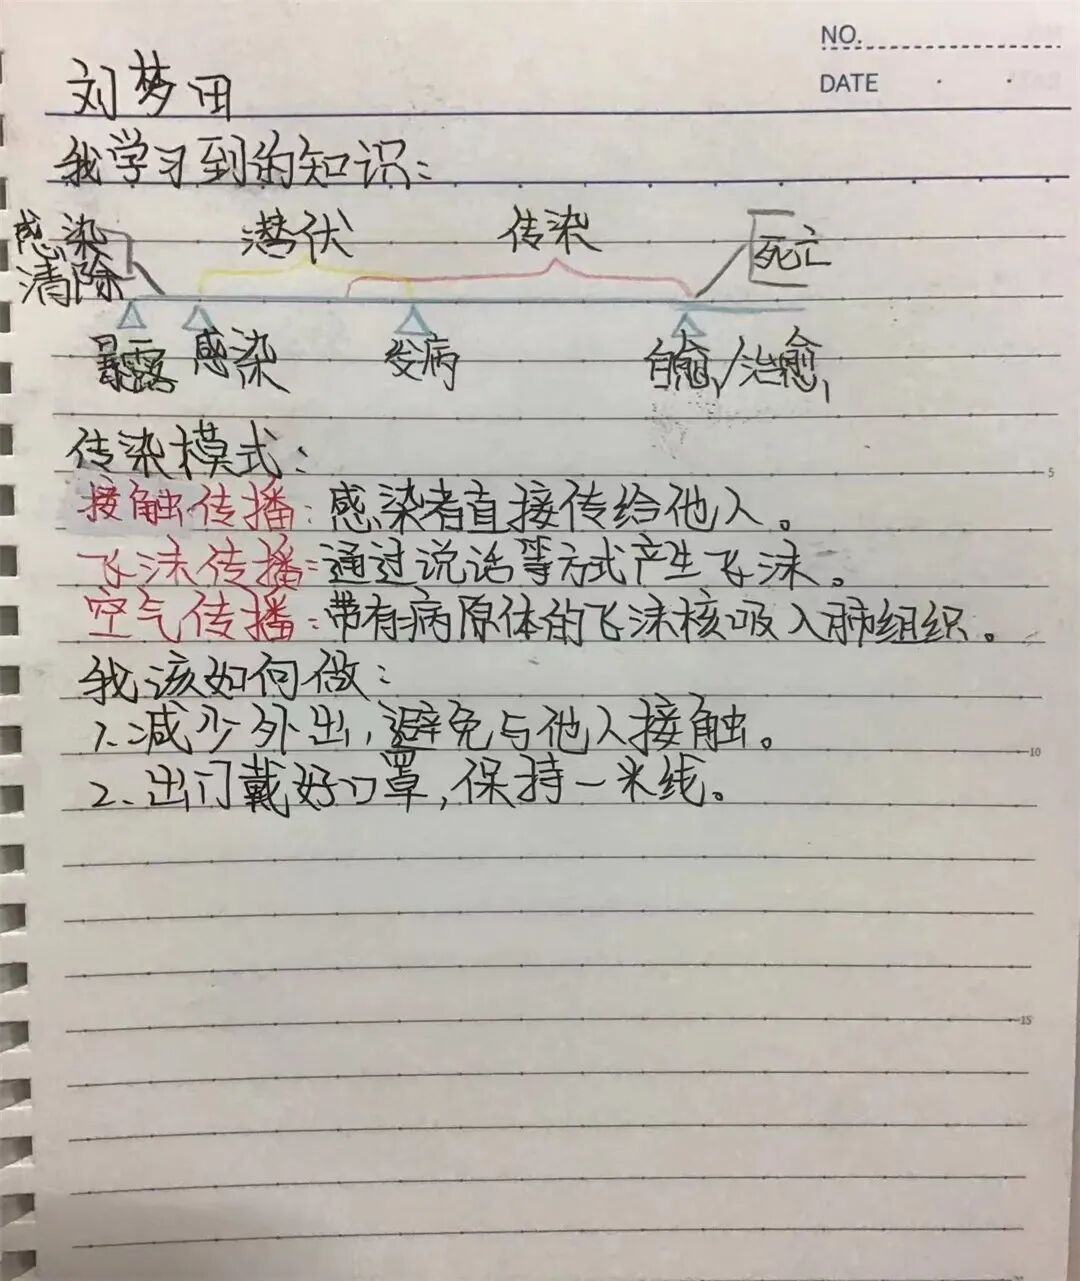 NO.
DATE
刘梦田
我学习到的知识：
感染 潜伏 传染 死亡
清除
暴露 感染 发病 自愈/治愈
传染模式：
接触传播：感染者直接传给他人。
飞沫传播：通过说话等方式产生飞沫。
空气传播：带有病原体的飞沫核吸入肺组织。
我该如何做：
1.减少外出，避免与他人接触。
2、出门戴好口罩，保持一米线。
5
10
15